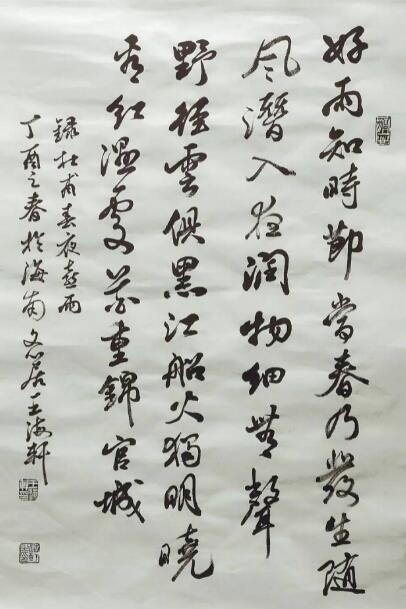 好雨知時節當春乃發生隨
风潛入夜润物细無聲
野徑雲俱黑江船火獨明曉
看红濕處花重錦官城
録杜甫春夜喜雨
丁酉之春於海南 居王海軒